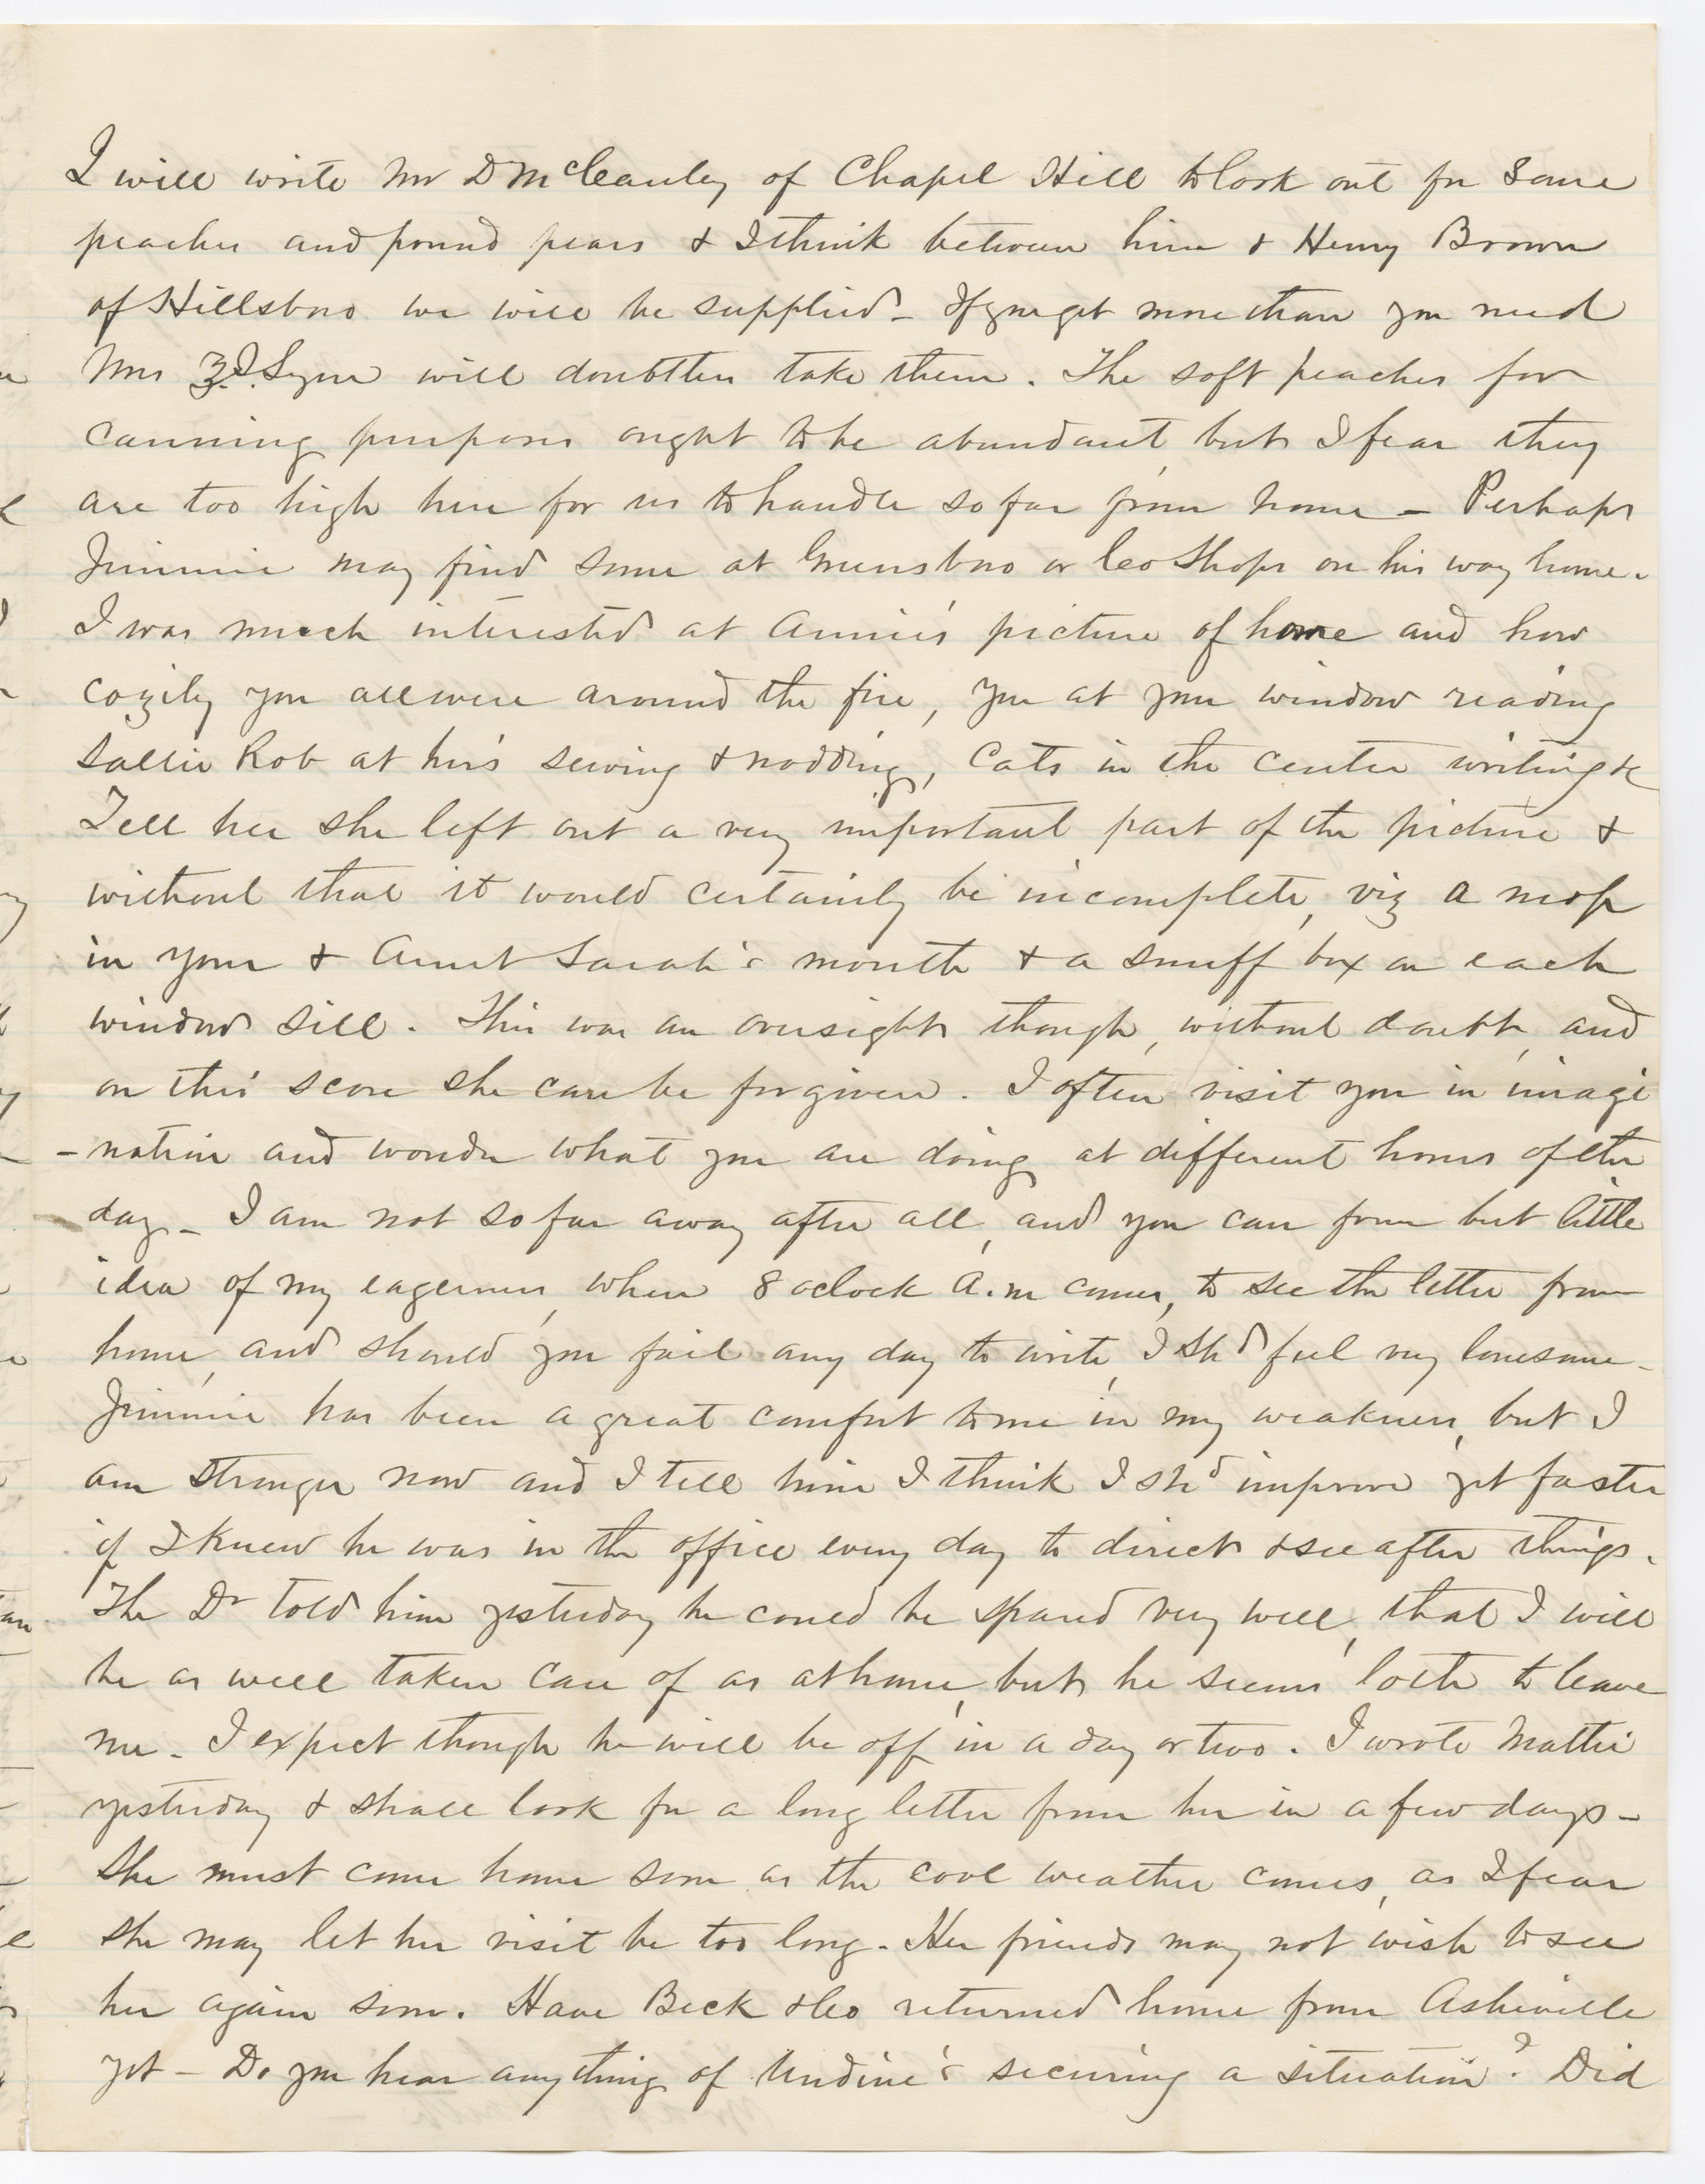 I will write Mr D McCauley of Chapel Hill to look out for some
peaches and pound pears & I think between him & Henry Brown
of Hillsboro we will be supplied – If you get more than you need
Mrs Z. I. Lyne will doubtless take them. The soft peaches for
canning purposes ought to be abundant, but I fear they
are too high here for us to handle so far from home – Perhaps
Jimmie may find some at Greensboro or Co Shops on his way home.
I was much interested at Annie's picture of home and how
cozily you all were around the fire, you at your window reading
Sallie Rob at her's sewing & nodding, Cats in the center writing &c
Tell her she left out a very important part of the picture &
without that it would certainly be incomplete, viz a mop
in your & Aunt Sarah's mouth & a snuff box on each
window sill. This was an oversight though, without doubt, and
on this score she can be forgiven. I often visit you in imagi
-nation and wonder what you are doing at different hours of the
day – I am not so far away after all, and you can form but little
idea of my eagerness, when 8 oclock A.m comes, to see the letter from
home, and should you fail any day to write, I shd feel very lonesome –
Jimmie has been a great comfort to me in my weakness, but I
am stronger now and I tell him I think I shd improve yet faster
if I knew he was in the office every day to direct & see after things.
The Dr told him yesterday he could be spared very well, that I will
be as well taken care of as at home, but he seems loth to leave
me – I expect though he will be off in a day or two. I wrote Mattie
yesterday & shall look for a long letter from her in a few days –
She must come home soon as the cool weather comes, as I fear
she may let her visit be too long – Her friends may not wish to see
her again soon. Have Beck & Leo returned home from Asheville
yet – Do you hear anything of Undine's securing a situation? Did